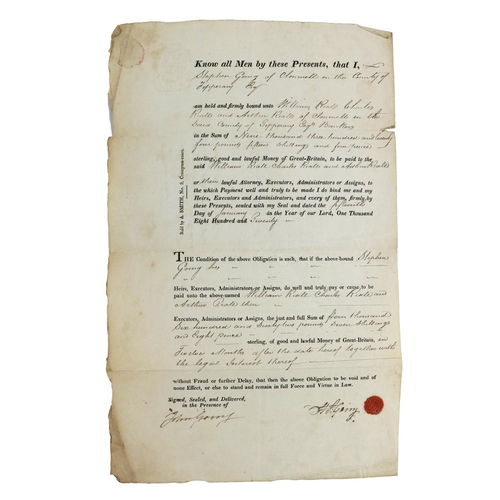 Know all Men by these Presents, that I,
Stephen Going of Clonmell in the County of
Tipperary Esq
am held and firmly bound unto William Riall Charles
Riall and Arthur Riall of Clonmell in the
Said County of Tipperary Esqrs Bankers
in the Sum of Nine thousand three hundred and twenty
four pounds fifteen Shillings and four pence
sterling, good and lawful Money of Great-Britain, to be paid to the
said William Riall Charles Riall and Arthur Riall
or their lawful Attorney, Executors, Administrators or Assigns, to
the which Payment well and truly to be made I do bind me and my
Heirs, Executors and Administrators, and every of them, firmly by
these Presents, sealed with my Seal and dated the fifteenth
Day of January in the Year of our Lord, One Thousand
Eight Hundred and Twenty
Sold by A. SMITH, No. 3,
THE Condition of the above Obligation is such, that if the above-bound Stephen
Going his
Heirs, Executors, Administrators or Assigns, do well and truly pay or cause to be
paid unto the above-named William Riall Charles Riall and
Arthur Riall their
Executors, Administrators or Assigns, the just and full Sum of four thousand
Six hundred and Sixty two pounds Seven Shillings
and Eight pence
sterling, of good and lawful Money of Great-Britain, in
Twelve Months after the date hereof together with
the legal Interest thereof
without Fraud or further Delay, that then the above Obligation to be void and of
none Effect, or else to stand and remain in full Force and Virtue in Law.
Signed, Sealed, and Delivered,
in the Presence of
John Going
Going